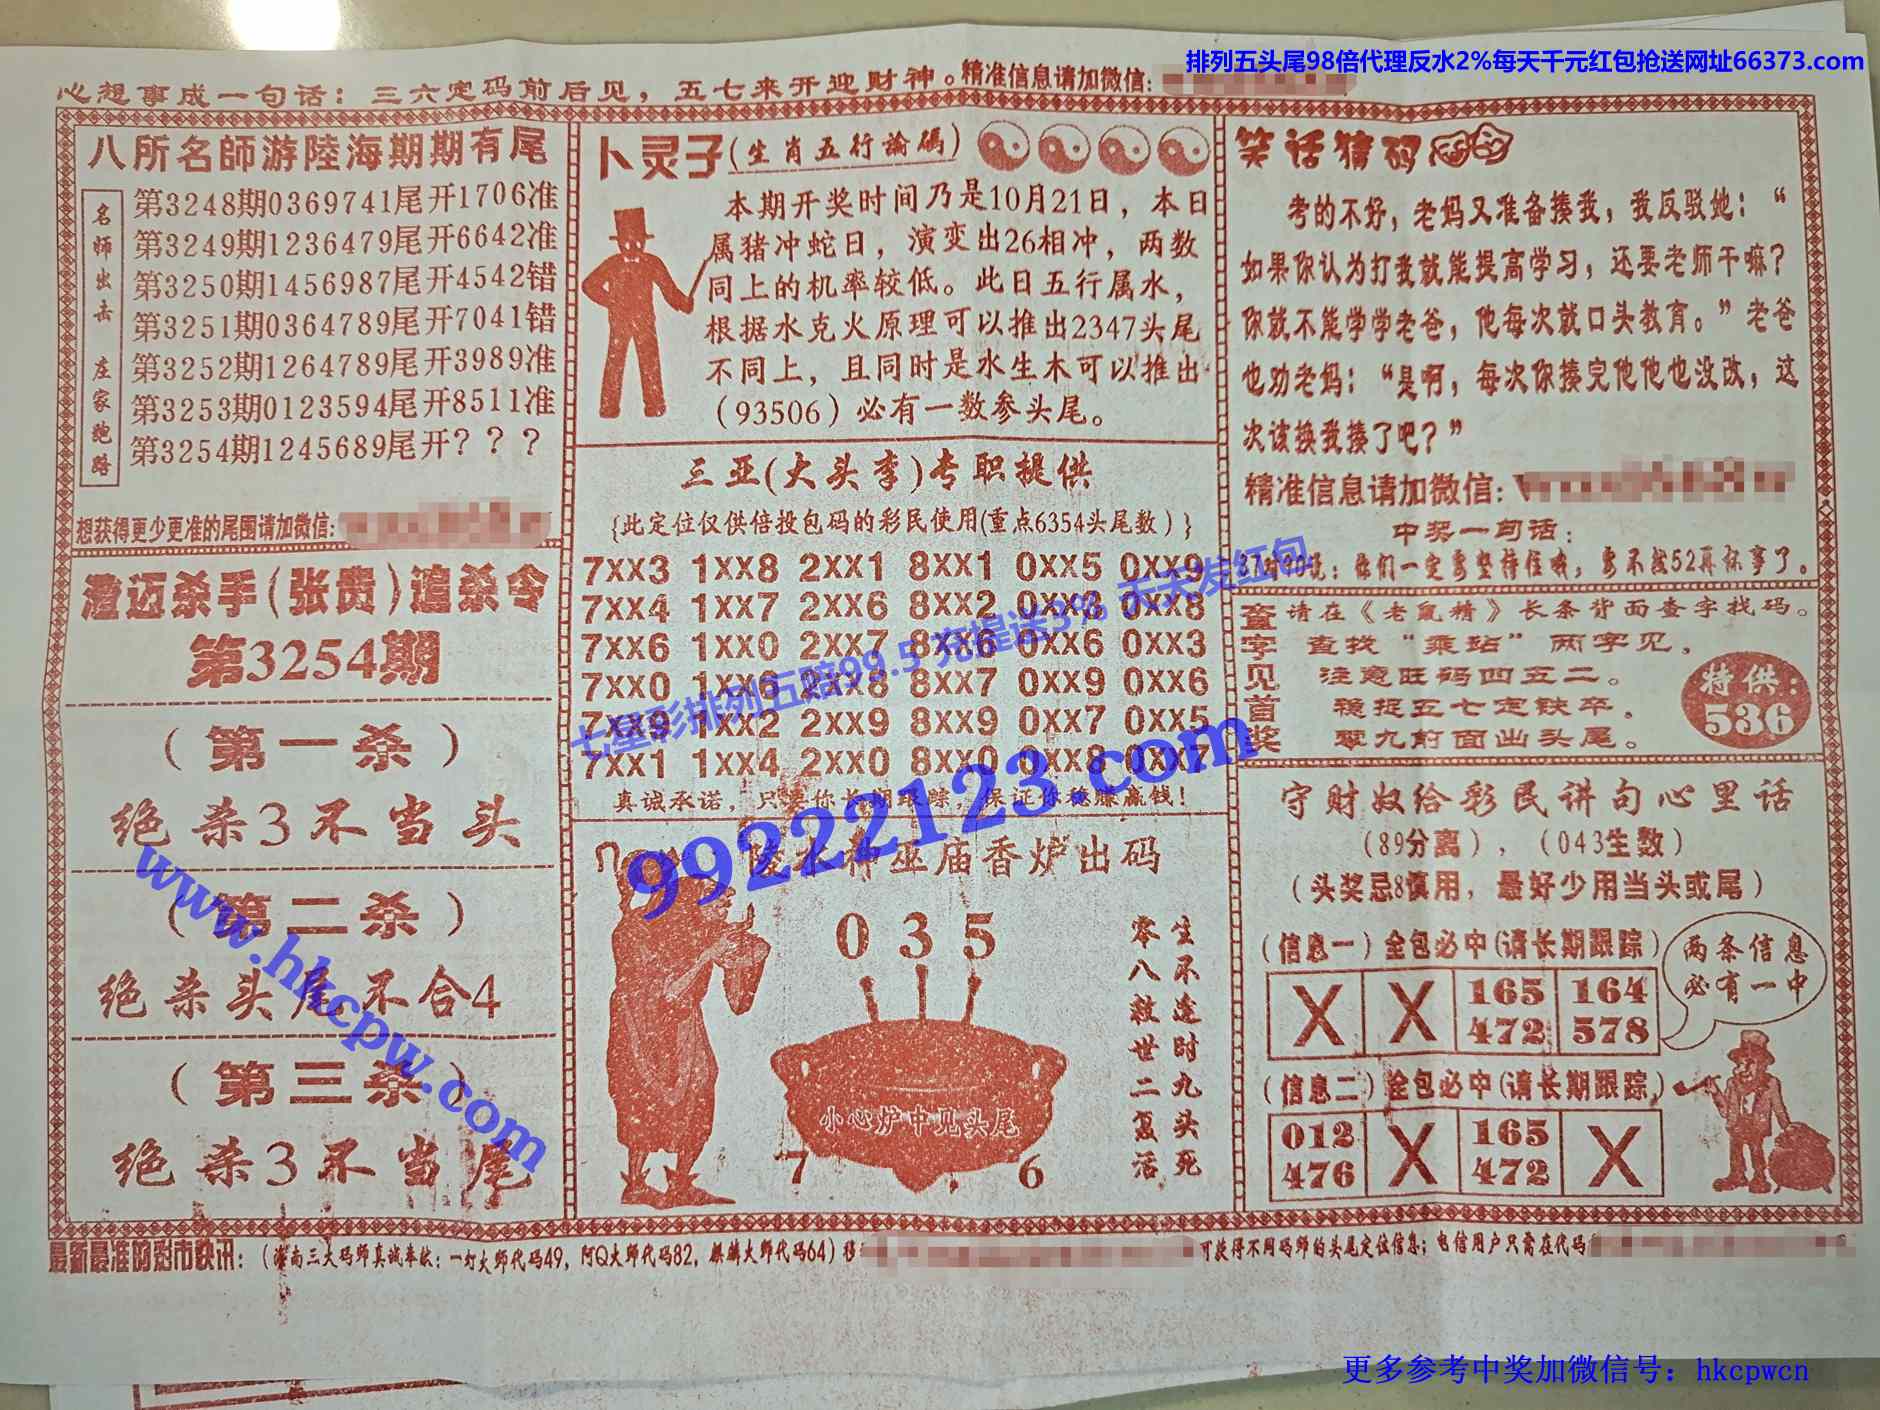 排列五头尾98倍代理反水2%每天千元红包抢送网址66373.com
心想事成一句话：三六定码前后见，五七来开迎财神。精准信息请加微信：
八所名師游陸海期期有尾
名师出击 庄家跑路
第3248期0369741尾开1706准
第3249期1236479尾开6642准
第3250期1456987尾开4542错
第3251期0364789尾开7041错
第3252期1264789尾开3989准
第3253期0123594尾开8511准
第3254期1245689尾开？？？
想获得更少更准的尾围请加微信：
澄迈杀手(张贵)追杀令
第3254期
（第一杀）
绝杀3不当头
（第二杀）
绝杀头尾不合4
（第三杀）
绝杀3不当尾
卜灵子(生肖五行論碼)
本期开奖时间乃是10月21日，本日
属猪冲蛇日，演变出26相冲，两数
同上的机率较低。此日五行属水，
根据水克火原理可以推出2347头尾
不同上，且同时是水生木可以推出
（93506）必有一数参头尾。
三亚(大头李)专职提供
{此定位仅供倍投包码的彩民使用(重点6354头尾数）}
7XX3 1XX8 2XX1 8XX1 0XX5 0XX9
7XX4 1XX7 2XX6 8XX2 0XX2 0XX8
7XX6 1XX0 2XX7 8XX6 0XX6 0XX3
7XX0 1XX6 2XX8 8XX7 0XX9 0XX6
7XX9 1XX2 2XX9 8XX9 0XX7 0XX5
7XX1 1XX4 2XX0 8XX0 0XX8 0XX7
真诚承诺，只要你长期跟踪，保证你稳赚赢钱！
七星彩排列五赔99.5 充提送3% 天天发红包
99222123.com
www.hkcpw.com
陵水神巫庙香炉出码
0 3 5
生不逢时九头死
零八救世二复活
小心炉中见头尾
7 6
笑话猜码
考的不好，老妈又准备揍我，我反驳她：“
如果你认为打我就能提高学习，还要老师干嘛？
你就不能学学老爸，他每次就口头教育。”老爸
也劝老妈：“是啊，每次你揍完他他也没改，这
次该换我揍了吧？”
精准信息请加微信：
中奖一句话：
37对90说：你们一定要坚持住哦，要不然52再怀事了。
查字见首奖
请在《老鼠精》长条背面查字找码。
查找“乘站”两字见，
注意旺码四五二。
稳捉五七定铁卒，
零九前面出头尾。
特供：
536
守财奴给彩民讲句心里话
（89分离），（043生数）
（头奖忌8慎用，最好少用当头或尾）
（信息一）全包必中(请长期跟踪）
X X 165 164
472 578
两条信息
必有一中
（信息二）全包必中(请长期跟踪）
012 X 165 X
476 472
最新最准的彩市快讯：（海南三大码师真诚奉献：一灯大师代码49，阿Q大师代码82，麒麟大师代码64）移
可获得不同码师的头尾定位信息；电信用户只需在代码
更多参考中奖加微信号：hkcpwcn